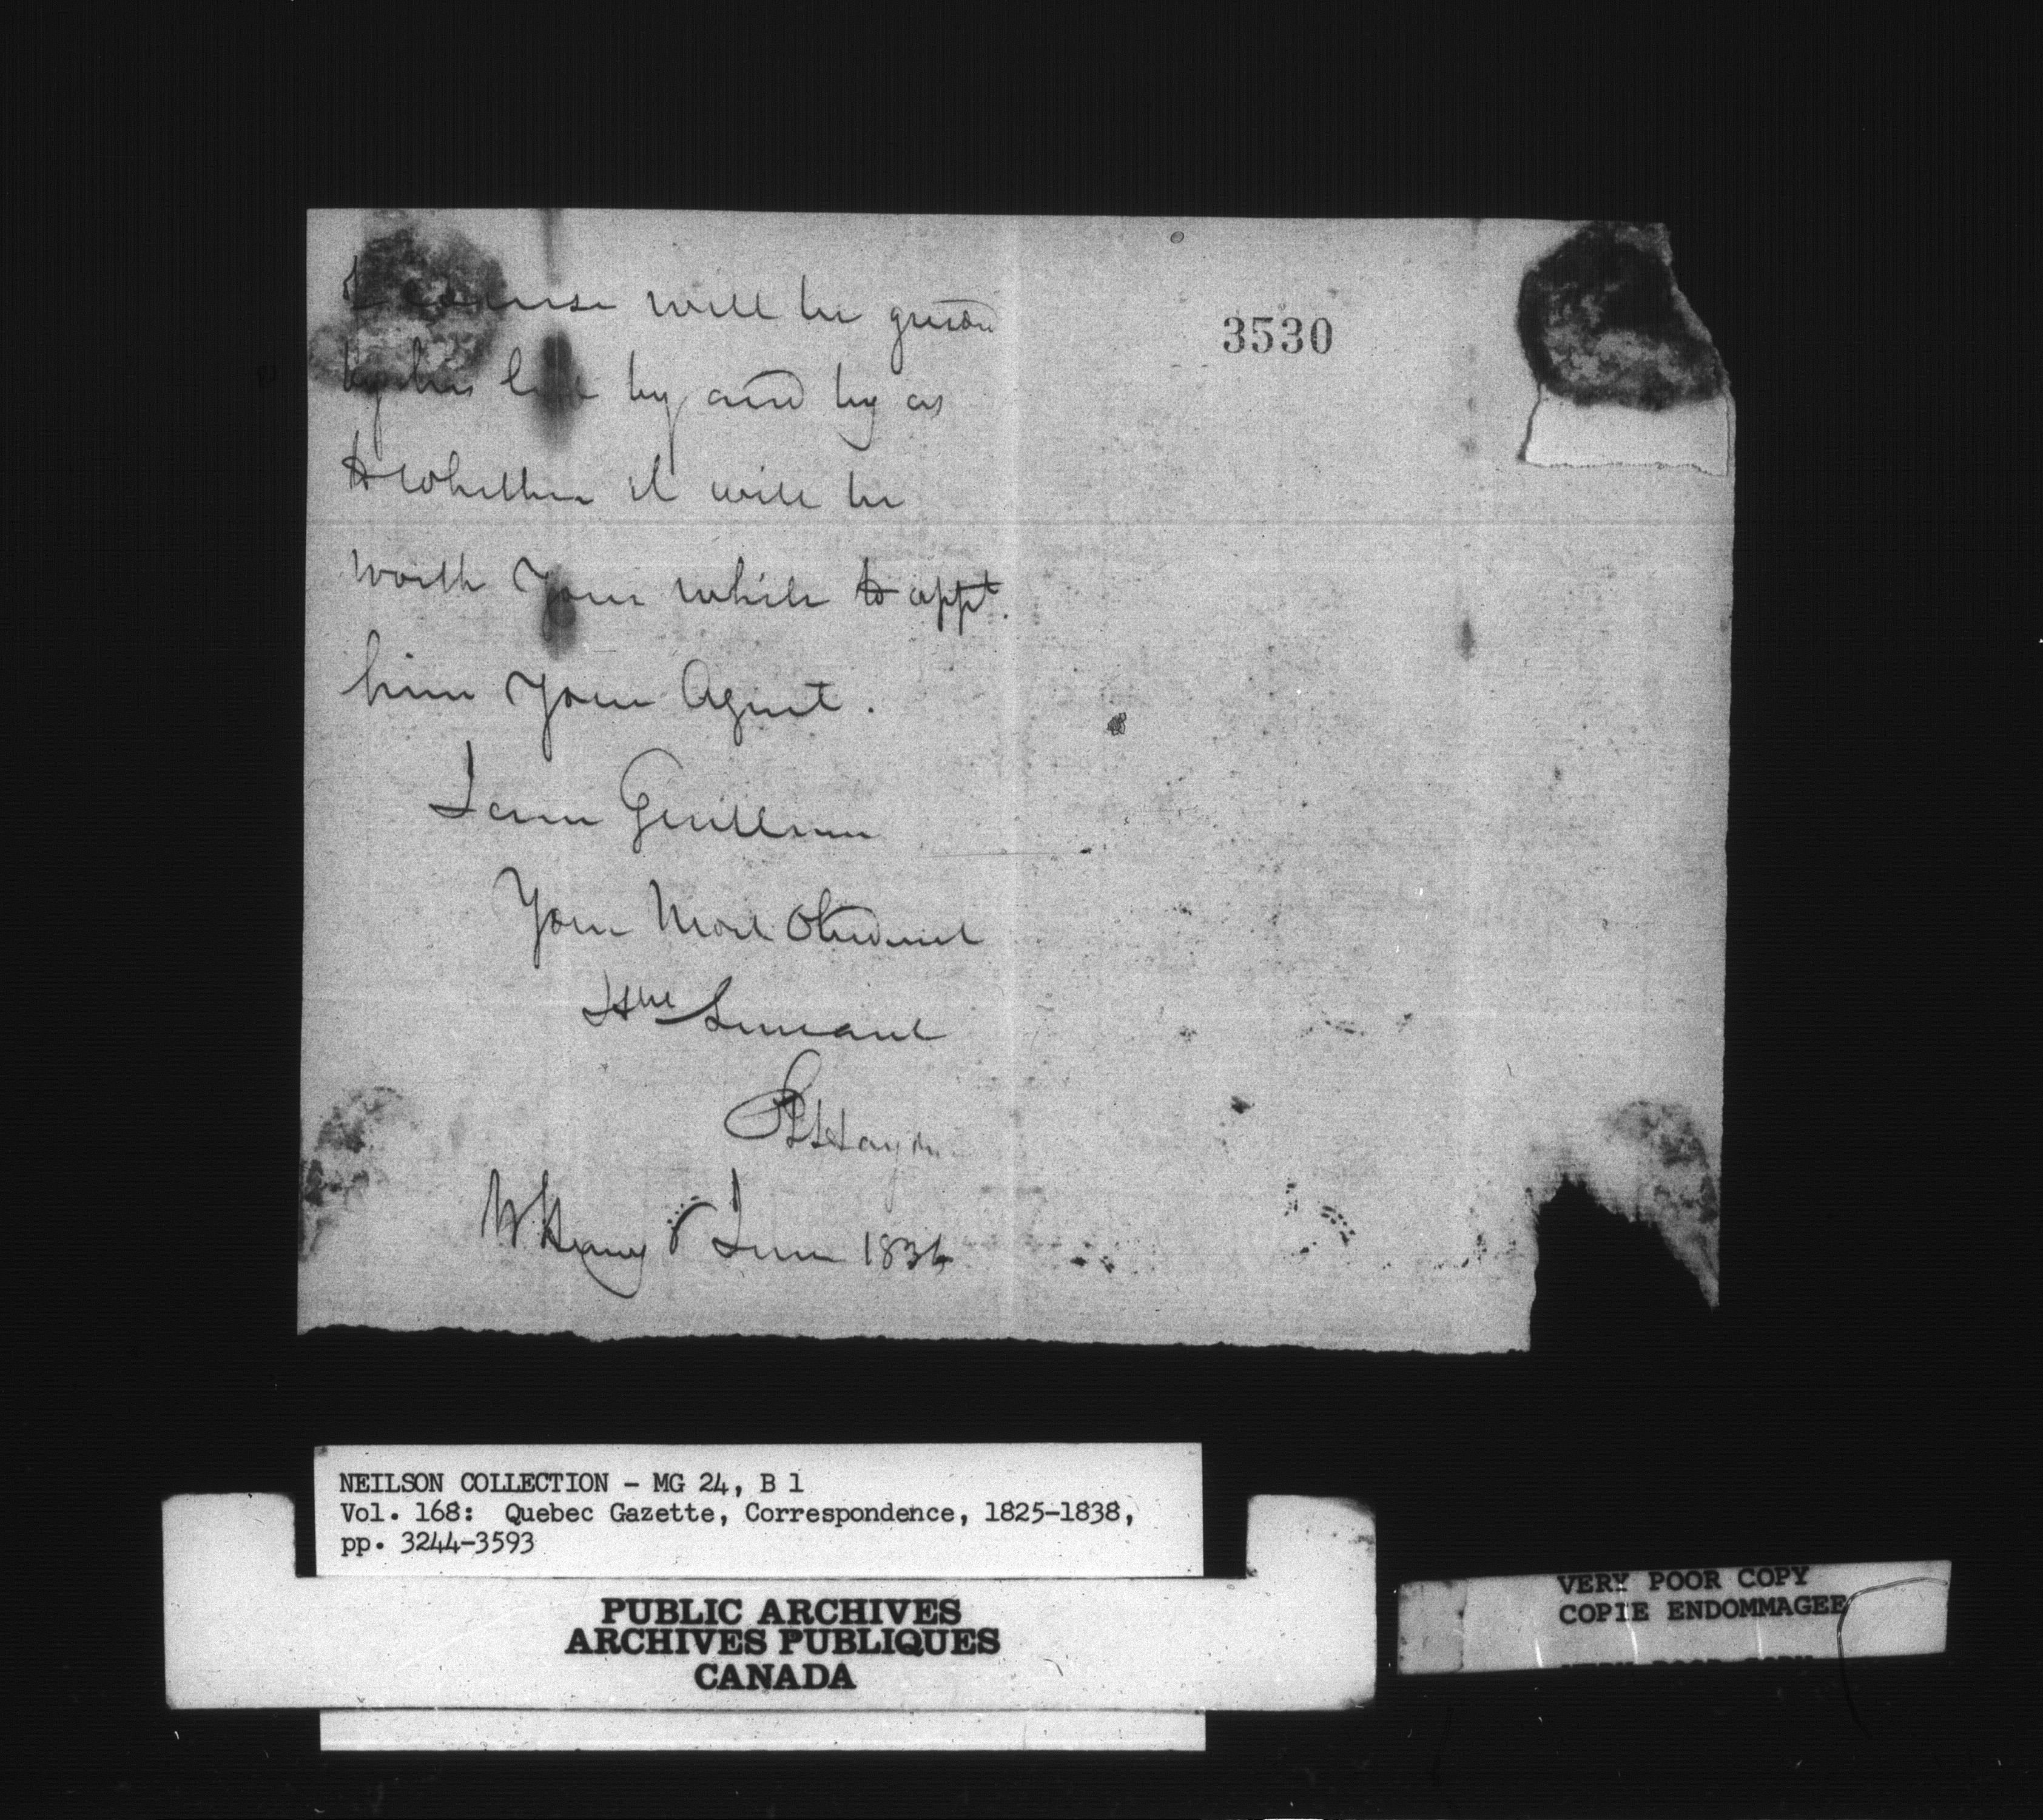 of course will be guided
by his by and by as
to whether it will be
worth your while to appt.
him your Agent.
I am Gentlemen
Your Most Obedient
Hble Servant
Hayden
8 June 1836
3530
NEILSON COLLECTION - MG 24, B 1
Vol. 168: Quebec Gazette, Correspondence, 1825-1838,
pp. 3244-3593
PUBLIC ARCHIVES
ARCHIVES PUBLIQUES
CANADA
VERY POOR COPY
COPIE ENDOMMAGEE